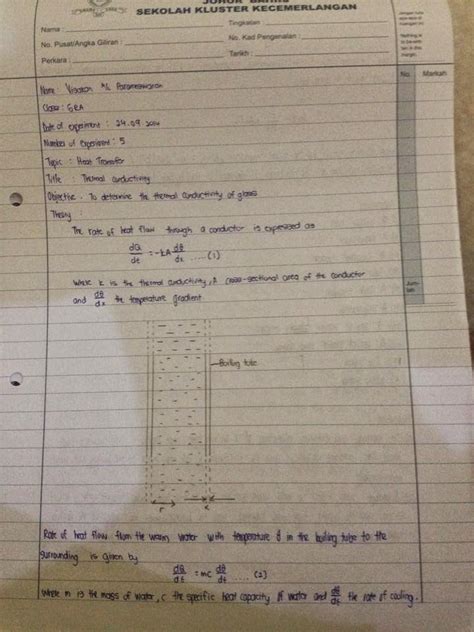 JOHOR BAHRU
SEKOLAH KLUSTER KECEMERLANGAN
Nama :
Tingkatan :
No. Pusat/Angka Giliran :
No. Kad Pengenalan :
Perkara :
Tarikh :
No. Markah
Name : A/L Parameswaran
Class :
Date of experiment : 24.09.2014
Number of experiment : 5
Topic : Heat Transfer
Title : Thermal conductivity
Objective : To determine the thermal conductivity of glass
Theory :
The rate of heat flow through a conductor is expressed as
dQ/dt = -kA dθ/dx ..... (1)
Where k is the thermal conductivity, A cross-sectional area of the conductor
and dθ/dx the temperature gradient
Jum-
lah
Boiling tube
r x
Rate of heat flow from the warm water with temperature θ in the boiling tube to the
surrounding is given by
dQ/dt = mc dθ/dt .... (2)
Where m is the mass of water, c the specific heat capacity of water and dθ/dt the rate of cooling.